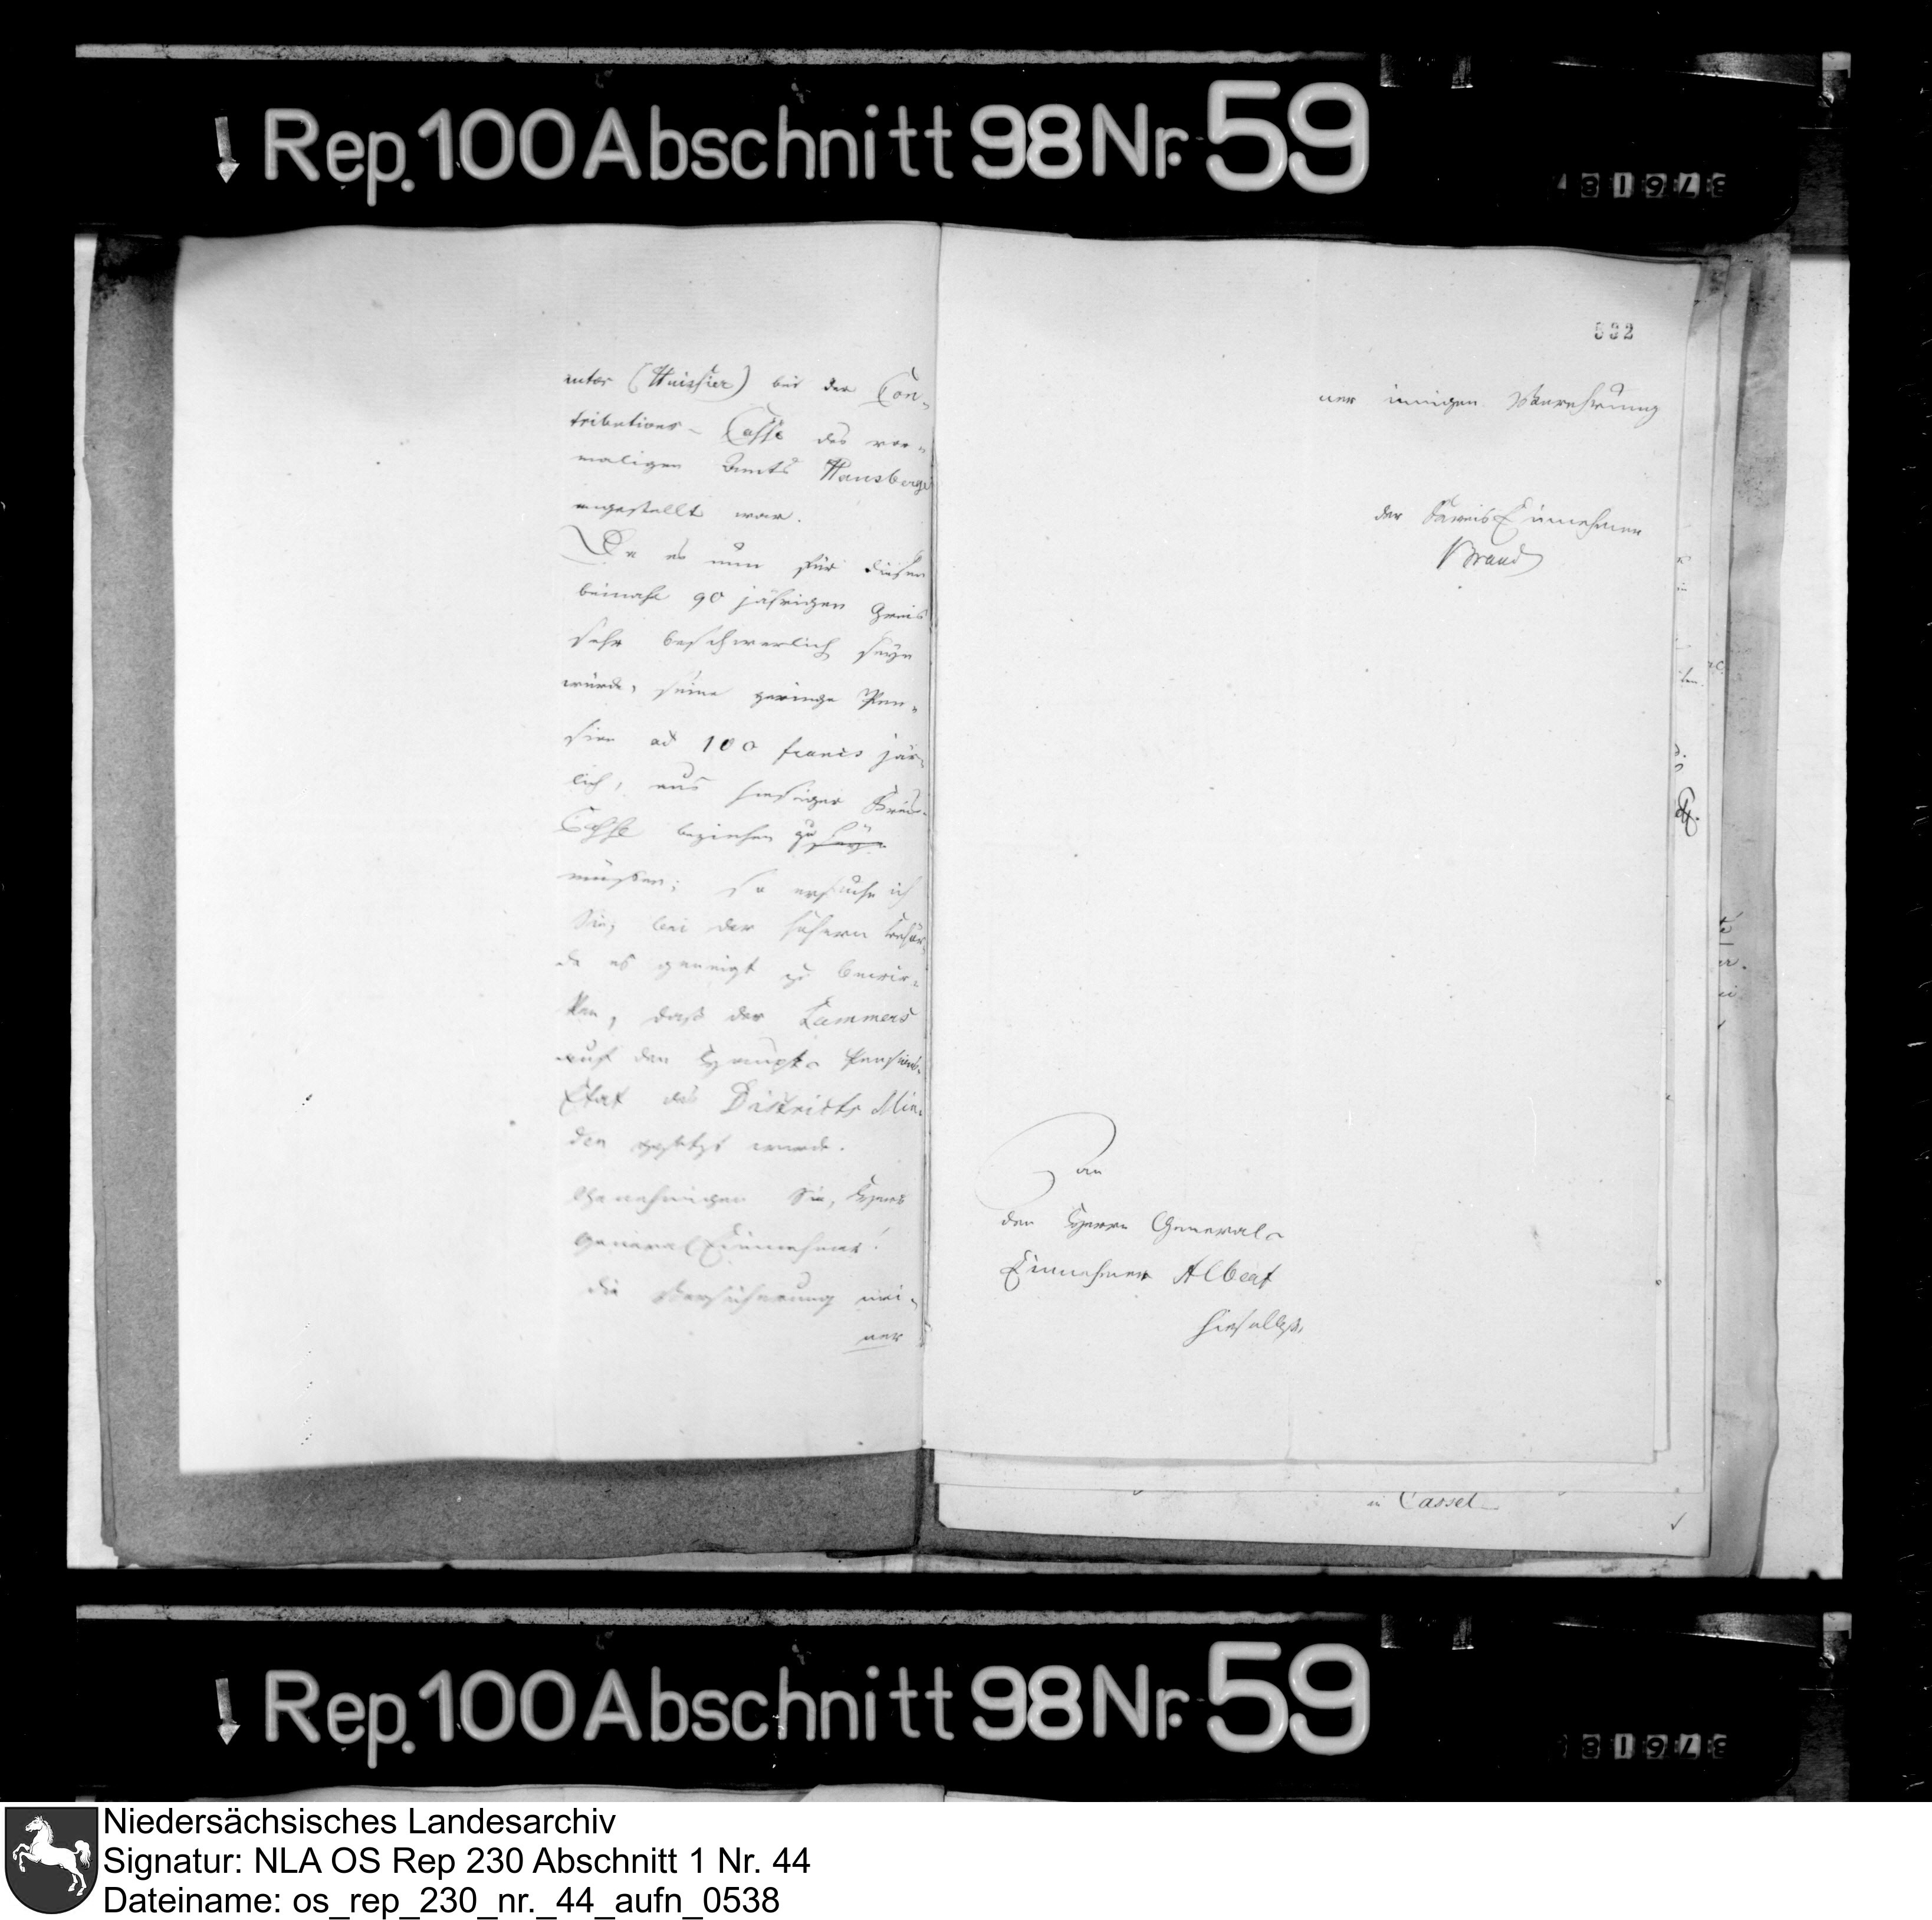 Rep. 100 Abschnitt 98 Nr. 59
(Huissier) bei der Con-
tributions-Casse des vor-
maligen Amts Hausberge
angestellt war.
Da es nun für diesen
beinahe 90 jährigen Greis
sehr beschwerlich seyn
würde, seine geringe Pen-
sion ad 100 francs jär-
lich, aus hiesiger Kreis-
Casse beziehen zu
müssen; so ersuche ich
Sie, bei der höhern Behör-
de es geneigt zu bewir-
ken, daß der Lammers
auf den Haupt-Pensions-
Etat des Districts Min-
den gesetzt werde.
Genehmigen Sie, Herr
General Einnehmer!
die Versicherung mei-
ner
532
ner innigen Verehrung
der Kreis Einnehmer
Brand
An
den Herrn General-
Einnehmer Albert
hieselbst.
in Cassel
Rep. 100 Abschnitt 98 Nr. 59
Niedersächsisches Landesarchiv
Signatur: NLA OS Rep 230 Abschnitt 1 Nr. 44
Dateiname: os_rep_230_nr._44_aufn_0538